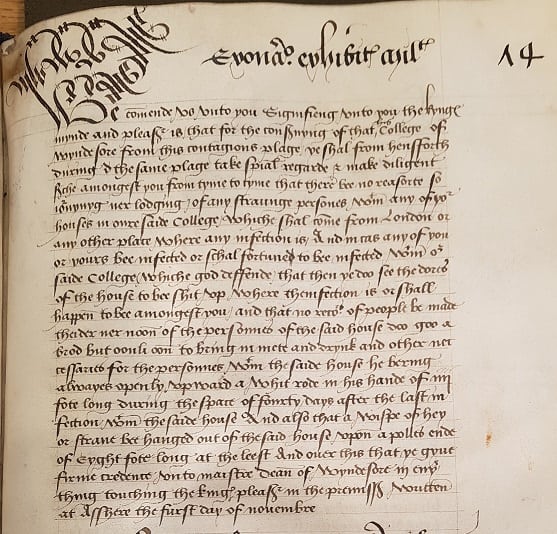 14
We comende vs vnto you Signifieng vnto you the kyng
mynde and pleas is that for the conseruyng of that, his College of
wyndesore from this contagious plage ye shal from hensforth
during the same plage take spial regarde & make diligent
serche amongest you from tyme to tyme that there bee no reasorte so
iournyng ner lodging of any straunge persones wtin any of yor
houses in oure saide College, whiche shal come from London or
any other place where any infection is, And incas any of you
or yours bee infected or schal fortune to bee infected wtin or
saide College, whiche god deffende, that then ye doo see the dores
of the house to bee shit vp where theinfection is or shall
happen to bee amongest you, and that no recors of people be made
theider ner noon of the personnes of the said house doo goo a
brod but oonli oon to bring in mete and drynk and other nec
cessaries for the personnes wtin the saide house he bering
alwayes openly vpward a whit rode in his hande of iiij
fote long during the space of fourty days after the last in
fection wtin the saide house And also that a wispe of hey
or strawe bee hanged out of the said house vpon a polles ende
of Eyght fote long at the leest And ouer this that ye gyue
firme credence vnto maistre dean of wyndesore in euy
thing touching the king pleas in the premiss written
at Asshere the furst day of nouembre